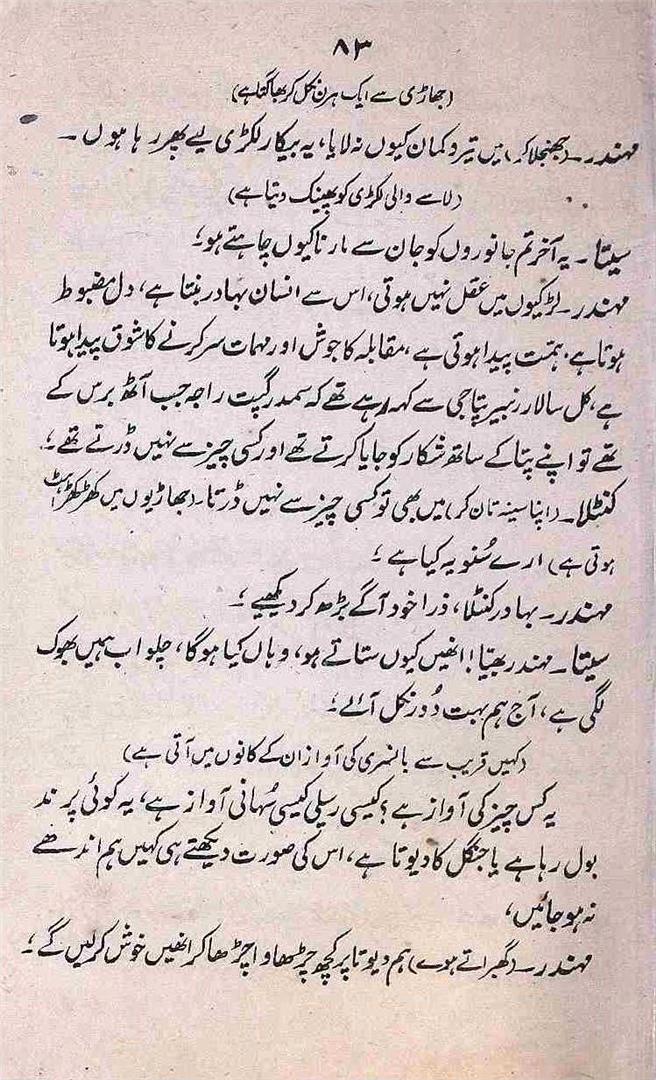 ۸۳
(جھاڑی سے ایک ہرن نکل کر بھاگتا ہے)
مہندر۔ (جھنجلا کر) میں تیر و کمان کیوں نہ لایا، یہ بیکار لکڑی لیے پھر رہا ہوں۔
(لاسے والی لکڑی کو پھینک دیتا ہے)
سیتا۔ یہ آخر تم جانوروں کو جان سے مارنا کیوں چاہتے ہو؟
مہندر۔ لڑکیوں میں عقل نہیں ہوتی، اس سے انسان بہادر بنتا ہے، دل مضبوط
ہوتا ہے، ہمت پیدا ہوتی ہے، مقابلہ کا جوش اور مہمات سر کرنے کا شوق پیدا ہوتا
ہے، کل سالار رنبیر پتا جی سے کہہ رہے تھے کہ سمدر گپت راجہ جب آٹھ برس کے
تھے تو اپنے پتا کے ساتھ شکار کو جایا کرتے تھے اور کسی چیز سے نہیں ڈرتے تھے۔
کنٹلا۔ (اپنا سینہ تان کر) میں بھی تو کسی چیز سے نہیں ڈرتا۔ (جھاڑیوں میں کھڑکھڑاہٹ
ہوتی ہے) ارے سُنو یہ کیا ہے؟
مہندر۔ بہادر کنٹلا، ذرا خود آگے بڑھ کر دیکھیے؟
سیتا۔ مہندر بھیّا! انھیں کیوں ستاتے ہو، وہاں کیا ہوگا، چلو اب ہمیں بھوک
لگی ہے، آج ہم بہت دُور نکل آئے۔
(کہیں قریب سے بانسری کی آواز ان کے کانوں میں آتی ہے)
یہ کس چیز کی آواز ہے؟ کیسی رسیلی کیسی سُہانی آواز ہے، یہ کوئی پرند
بول رہا ہے یا جنگل کا دیوتا ہے، اس کی صورت دیکھتے ہی کہیں ہم اندھے
نہ ہو جائیں،
مہندر۔ (گھبراتے ہوے) ہم دیوتا پر کچھ چڑھاوا چڑھا کر انھیں خوش کر لیں گے۔